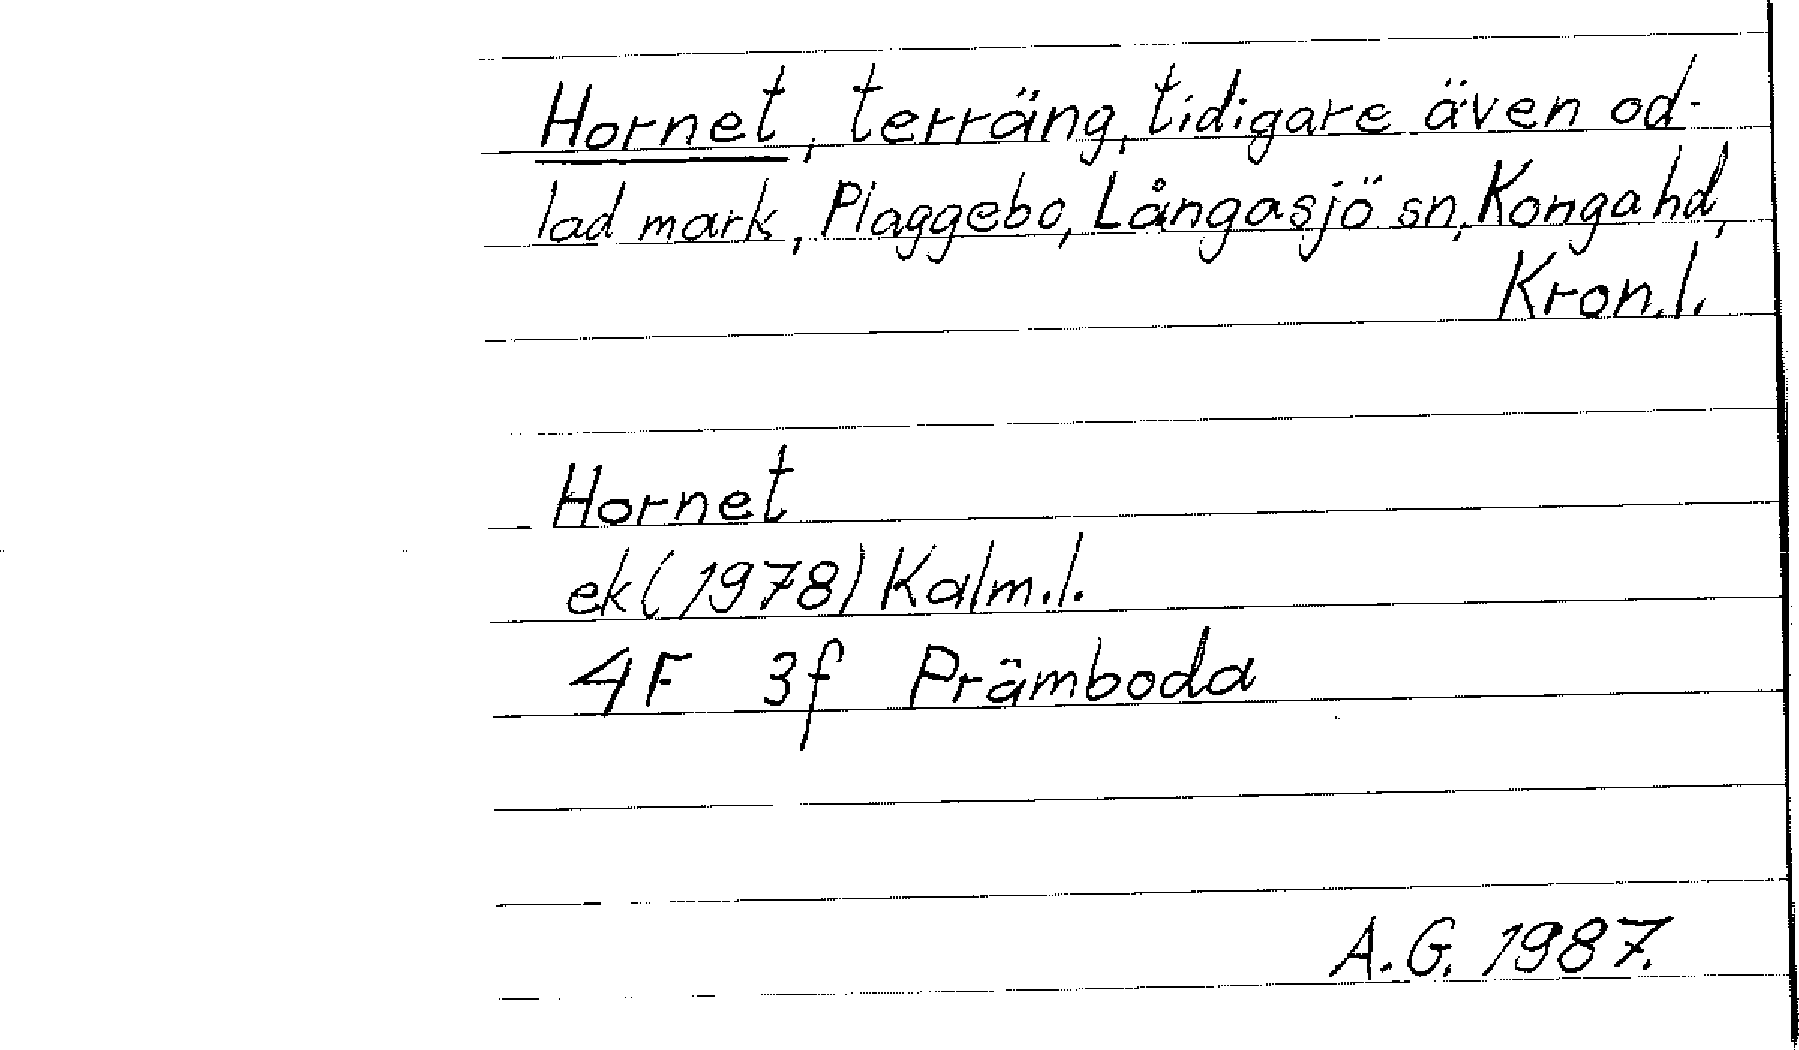 Hornet, terräng, tidigare även od-
lad mark, Plaggebo, Långasjö sn, Konga hd,
Kron.l.
Hornet
ek (1978) Kalm.l.
4F 3f Prämboda
A.G. 1987.